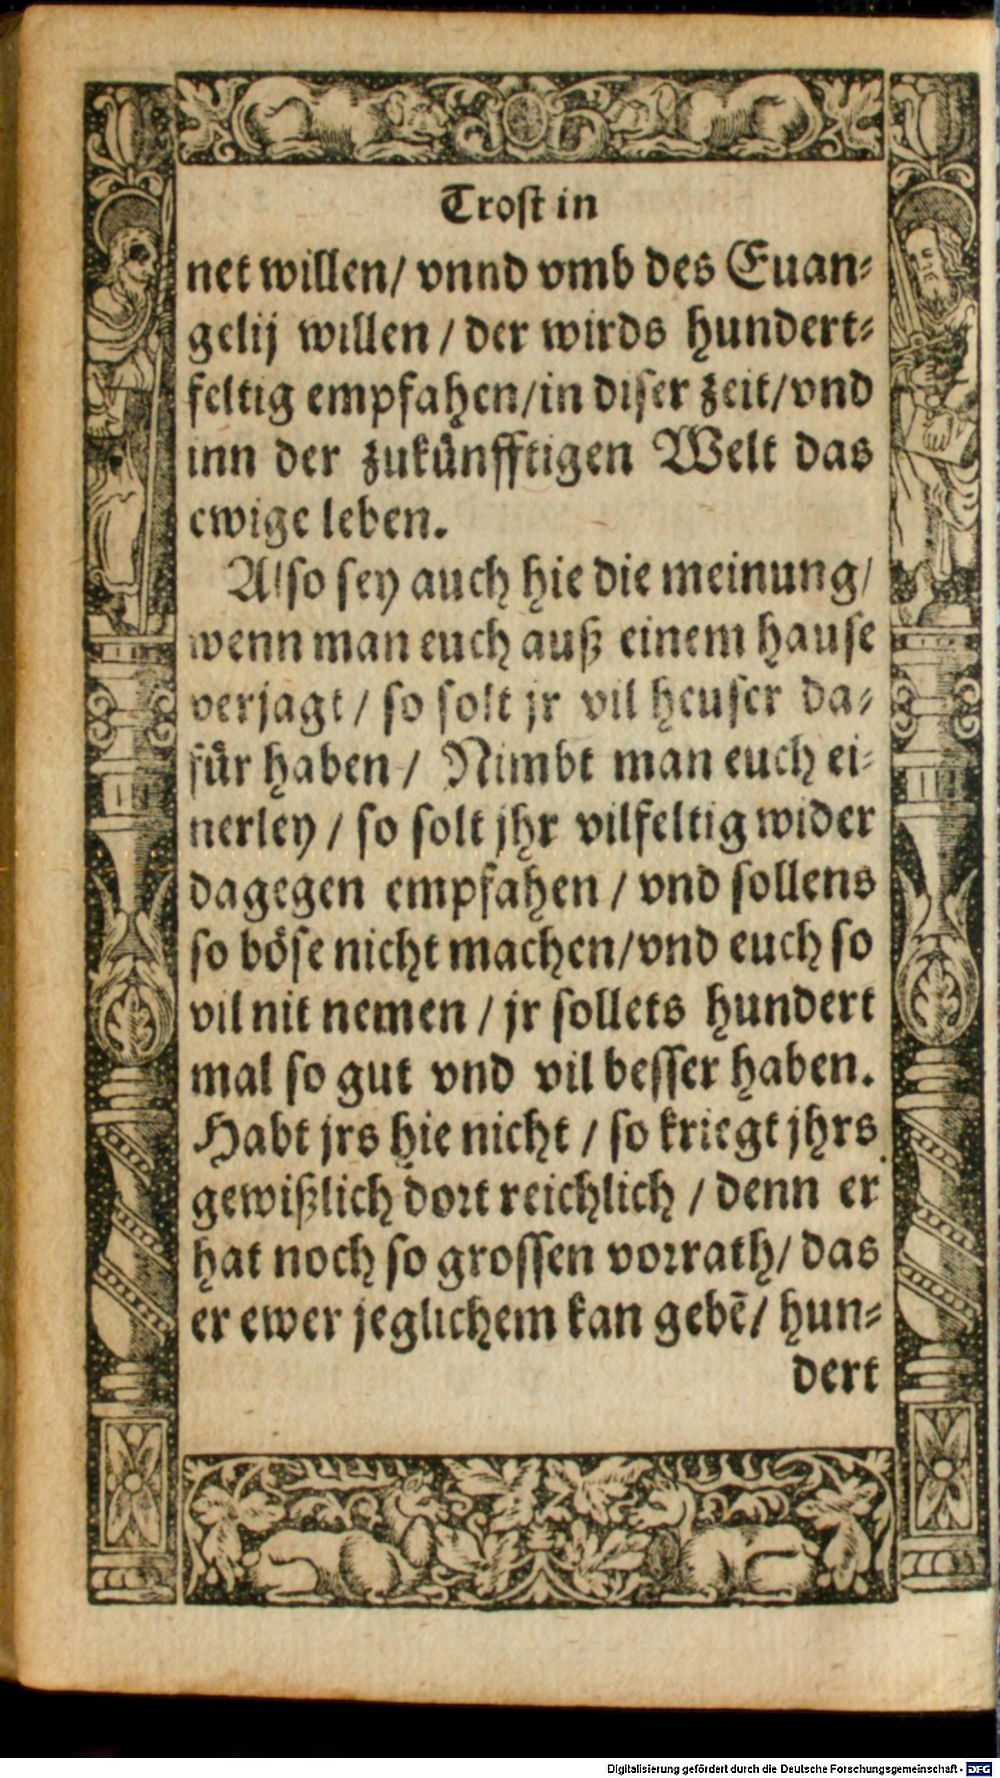 Trost in
net willen/ vnnd vmb des Euan⸗
gelij willen / der wirds hundert⸗
feltig empfahen/in diser zeit/vnd
inn der zukünfftigen Welt das
ewige leben.
Also sey auch hie die meinung/
wenn man euch auß einem hause
verjagt / so solt jr vil heuser da⸗
für haben / Nimbt man euch ei⸗
nerley / so solt jhr vilfeltig wider
dagegen empfahen / vnd sollens
so böse nicht machen/vnd euch so
vil nit nemen / jr sollets hundert
mal so gut vnd vil besser haben.
Habt jrs hie nicht / so kriegt jhrs
gewißlich dort reichlich / denn er
hat noch so grossen vorrath/ das
er ewer jeglichem kan gebē/ hun⸗
dert
Digitalisierung gefördert durch die Deutsche Forschungsgemeinschaft - DFG